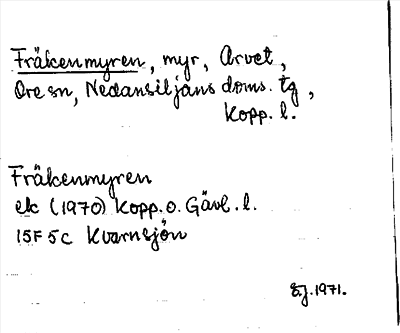 Fräkenmyren, myr, Arvet,
Ore sn, Nedansiljans doms. tg,
Kopp. l.
Fräkenmyren
ek (1970) Kopp. o. Gävl. l.
15F 5c Kvarnsjön
1971.